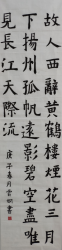 故人西辭黃鶴樓煙花三月
下揚州孤帆遠影碧空盡唯
見長江天際流
庚子春月